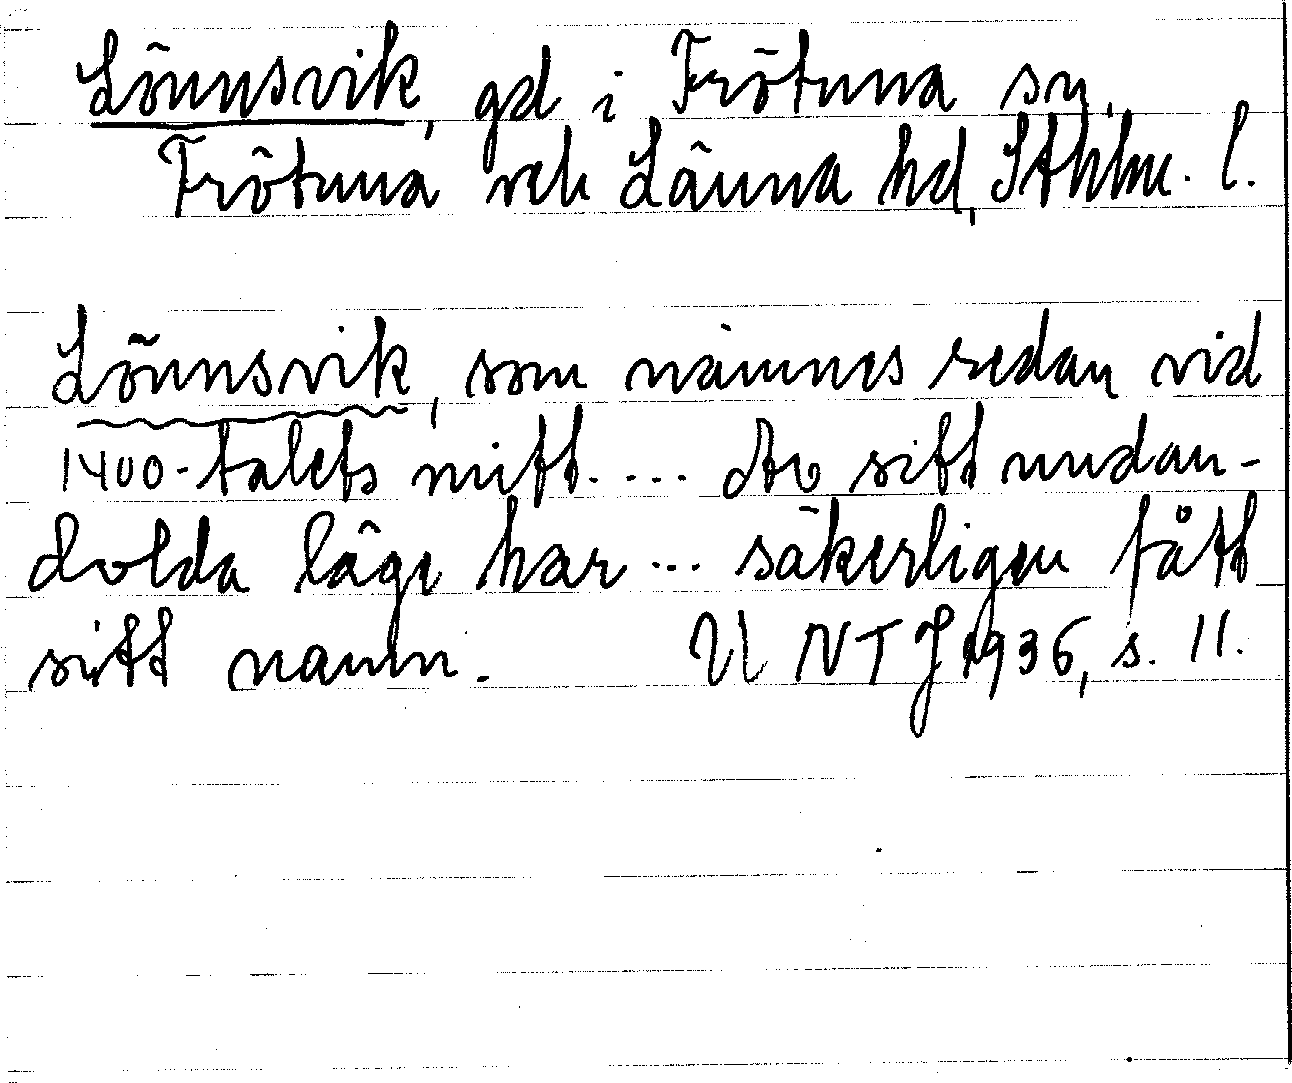 Lönnsvik, gd i Frötuna sn,
Frötuna och Länna hd, Sthlm. l.
Lönnsvik, som nämnes redan vid
1400-talets mitt.... Av sitt undan-
dolda läge har... säkerligen fått
sitt namn. UNTJ 1936, s. 11.